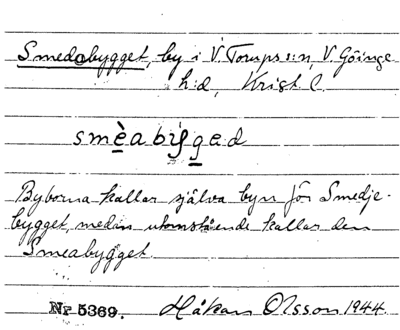 Smedebygget, by i V. Torups s:n, V. Göinge
h:d, Krist. l.
smèabýged
Byborna kallar själva byn för Smedje-
bygget, medan utomstående kallar den
Smeabygget.
Nr 5369. Håkan Olsson 1944.